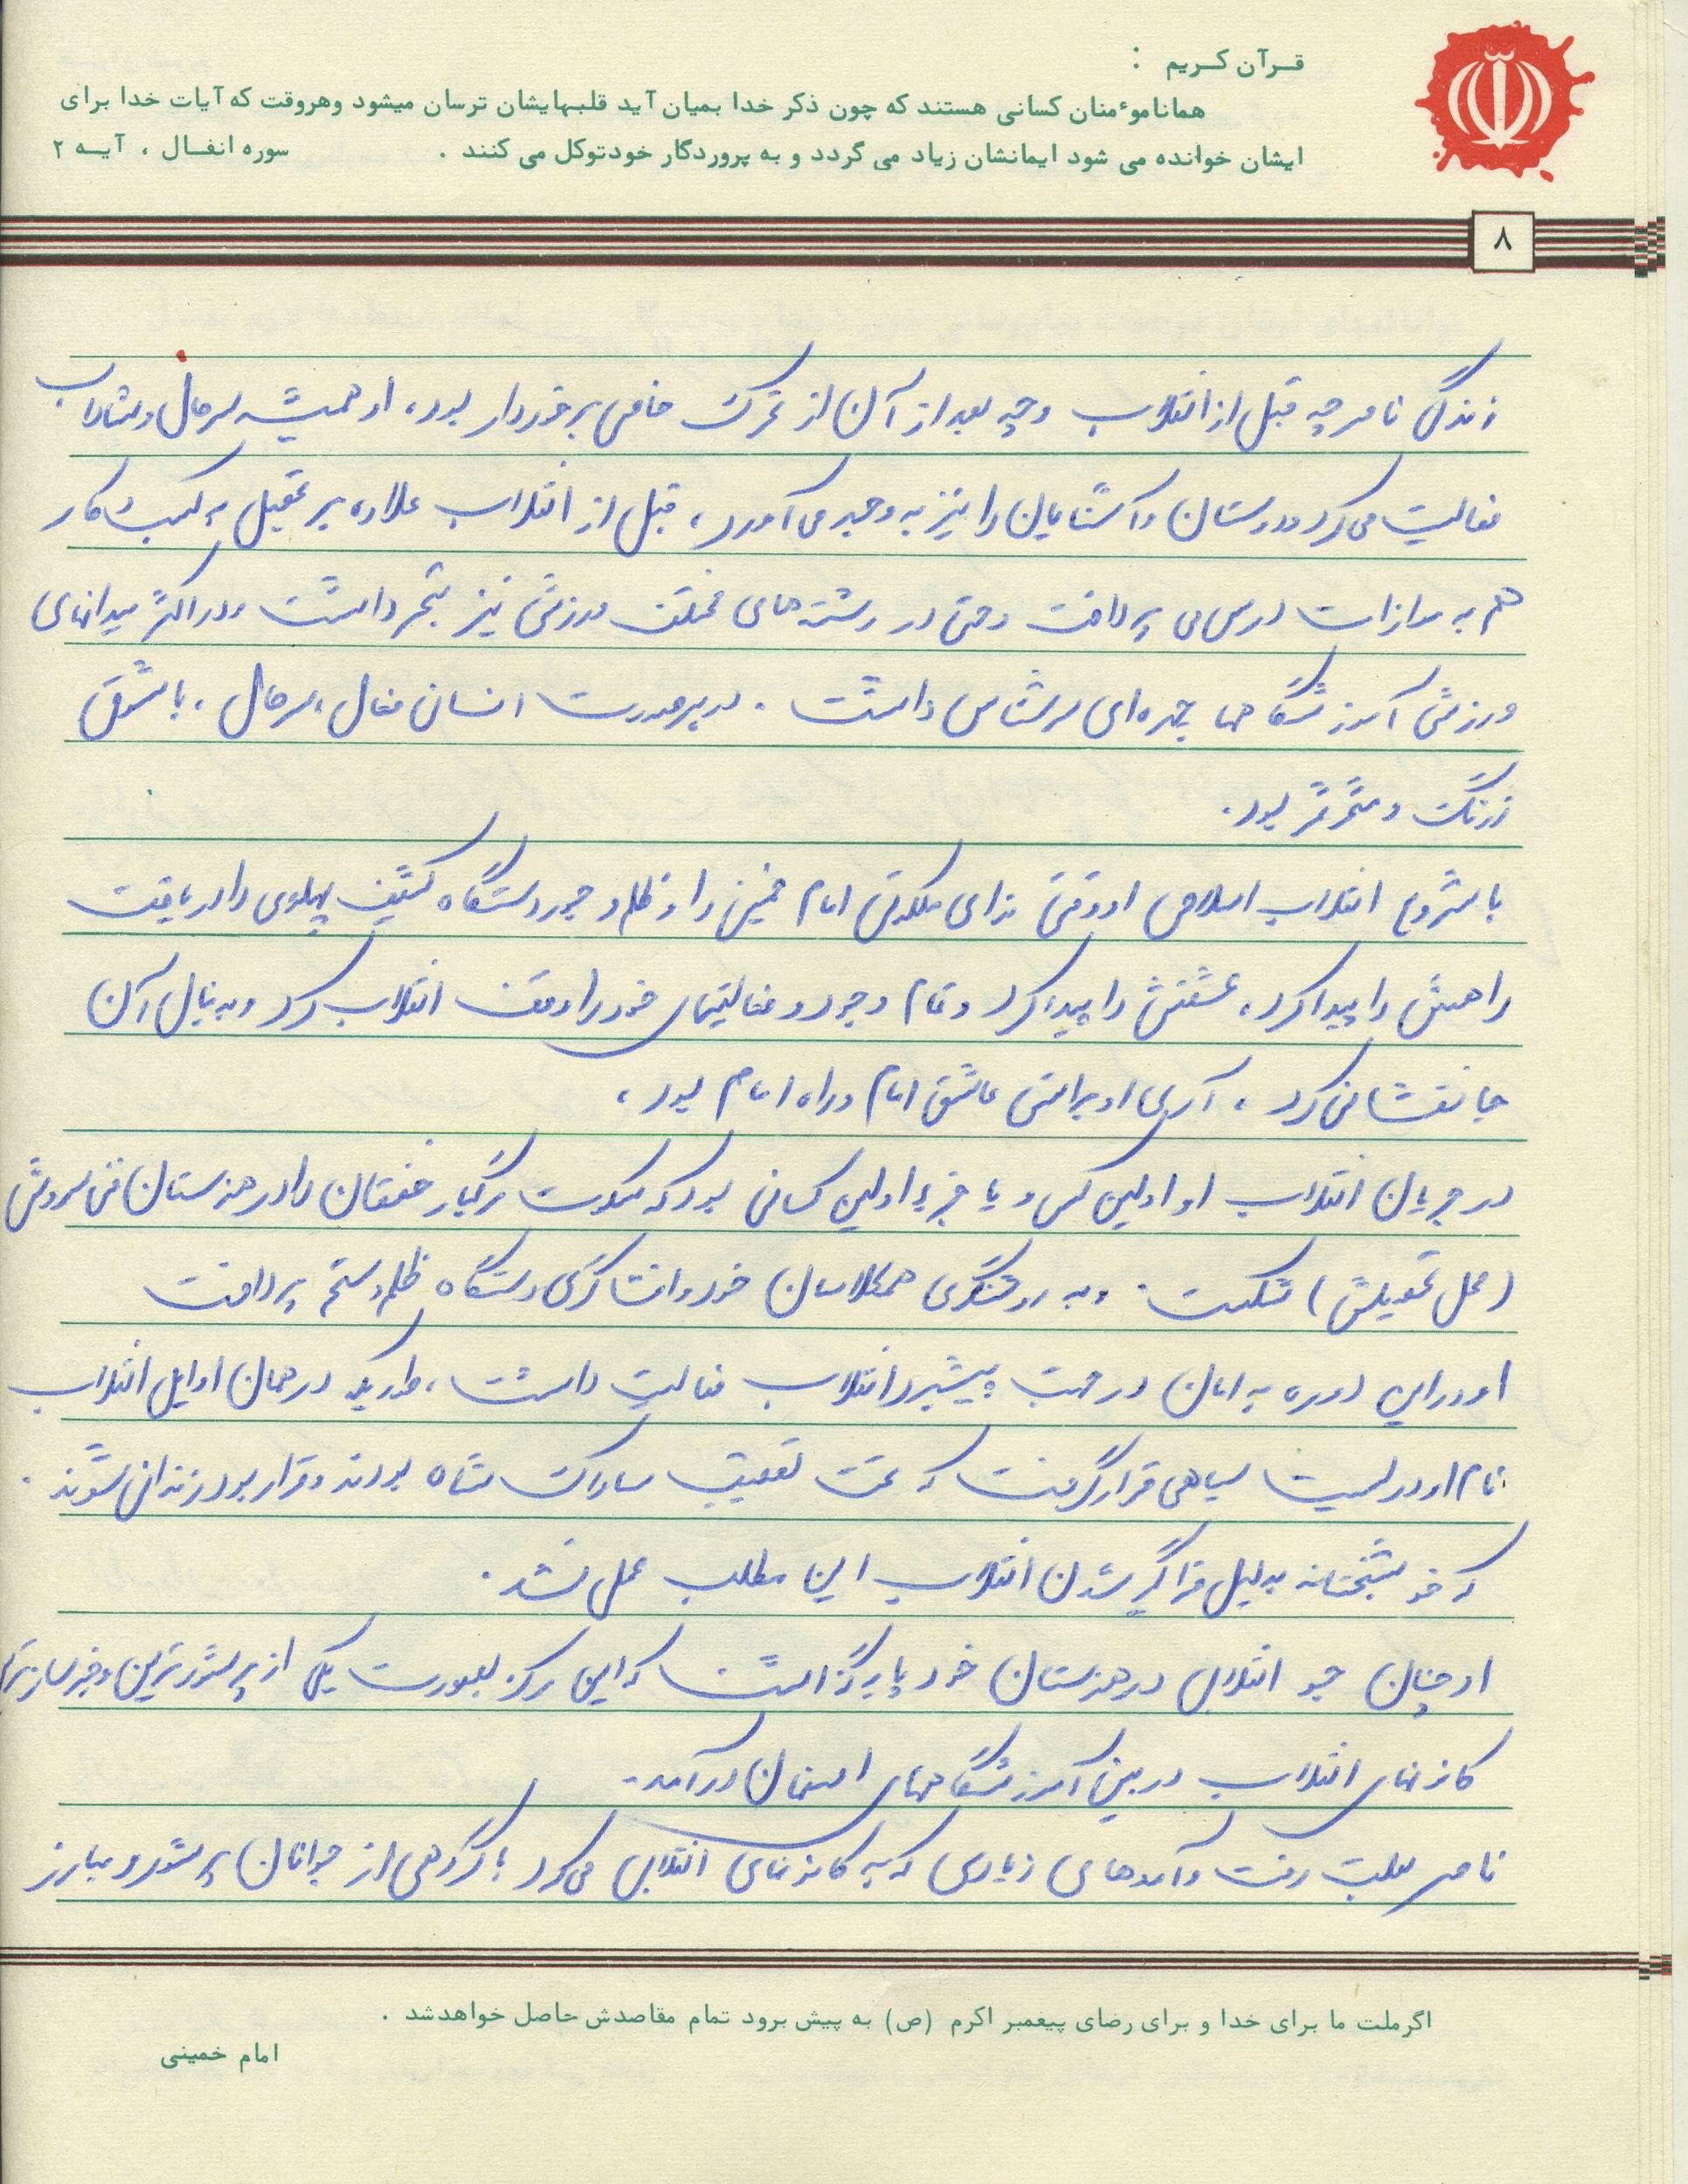 قرآن کریم :
همانا موٴمنان کسانی هستند که چون ذکر خدا بمیان آید قلبهایشان ترسان میشود وهروقت که آیات خدا برای
ایشان خوانده می شود ایمانشان زیاد می گردد و به پروردگار خودتوکل می کنند . سوره انفال ، آیه ۲
۸
زندگی ناصر چه قبل از انقلاب و چه بعد از آن از تحرک خاصی برخوردار بود، او همیشه سرحال و شاداب
فعالیت می کرد و دوستان و آشنایان را نیز به وجد می آورد، قبل از انقلاب علاوه بر تحصیل به کسب و کار
هم به موازات درس می پرداخت و حتی در رشته های مختلف ورزشی نیز تبحر داشت و در اکثر میدانهای
ورزشی آموزشگاهها چهره ای سرشناس داشت . در هر صورت انسان فعال ، سرحال ، با شوق
زرنگ و متحرک بود.
با شروع انقلاب اسلامی او وقتی ندای ملکوتی امام خمینی را و ظلم و جور دستگاه کثیف پهلوی را دریافت
راهش را پیدا کرد ، عشقش را پیدا کرد و تمام وجود و فعالیتهای خود را وقف انقلاب کرد و بدنبال آن
جانفشانی کرد ، آری او براستی عاشق امام و راه امام بود ،
در جریان انقلاب او اولین کس و یا جزء اولین کسانی بود که سکوت مرگبار خفقان را در هنرستان فنی سروش
(محل تحصیلش) شکست . و به روشنگری همکلاسان خود و افشاگری دستگاه ظلم و ستم پرداخت
او در این دوره بی امان در جهت پیشبرد انقلاب فعالیت داشت ، طوریکه در همان اوایل انقلاب
نام او در لیست سیاهی قرار گرفت که تحت تعقیب ساواک شاه بودند و قرار بود زندانی شوند .
که خوشبختانه بدلیل فراگیر شدن انقلاب این مطلب عملی نشد .
او چنان جو انقلابی در هنرستان خود پایه گذاشت که این مرکز بصورت یکی از پرشورترین و خبرسازترین
کانونهای انقلاب در بین آموزشگاههای اصفهان درآمد.
ناصر بعلت رفت و آمدهای زیادی که به کانونهای انقلابی می کرد با گروهی از جوانان پرشور و مبارز
اگرملت ما برای خدا و برای رضای پیغمبر اکرم (ص) به پیش برود تمام مقاصدش حاصل خواهدشد .
امام خمینی